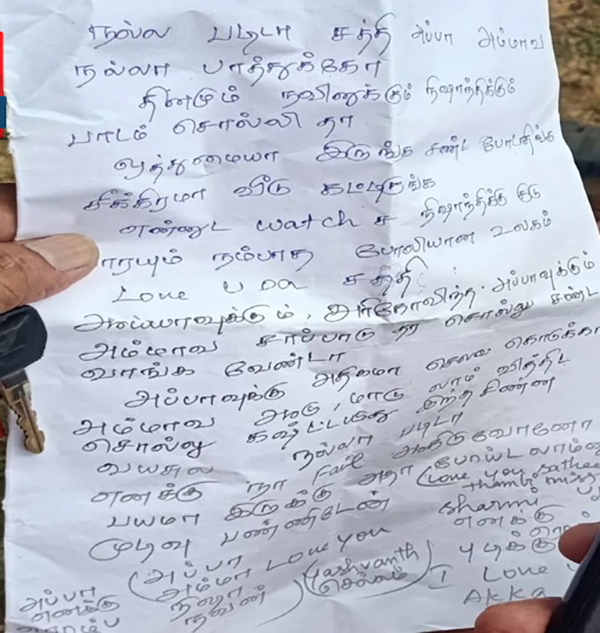 நல்ல படிடா சத்தி அப்பா அம்மாவ
நல்லா பாத்துக்கோ
தினமும் நவினுக்கும் நிஷாந்திக்கும்
பாடம் சொல்லி தா
ஒத்துமையா இருங்க சண்ட போடாதிங்க
சீக்கிரமா வீடு கட்டிடுங்க
என்னுட watch ச நிஷாந்திக்கு குடு
யாரயும் நம்பாத போலியான உலகம்
Love u da சத்தி
அம்மாவ சாப்பாடு தர சொல்லு சண்ட
வாங்க வேண்டா
அப்பாவுக்கு அதிகமா செலவ கொடுக்கா
அம்மாவ ஆடு, மாடு லாம் வித்திட
சொல்லு கஷ்டப்படுது இந்த சின்ன
வயசுல நல்லா படிடா
எனக்கு நா Fail ஆகிடுவோனோ
பயமா இருக்கு அதா போய்டலாம்னு
முடிவு பண்ணிடேன்
(Love you
thambi miss
sharmi
(அப்பா
அம்மா Love you
நிஷா
நவின்)
(Yashvanth
செல்லம்)
எனக்கு
புடிக்கு
I Love
Akka
அப்பா
எனக்கு